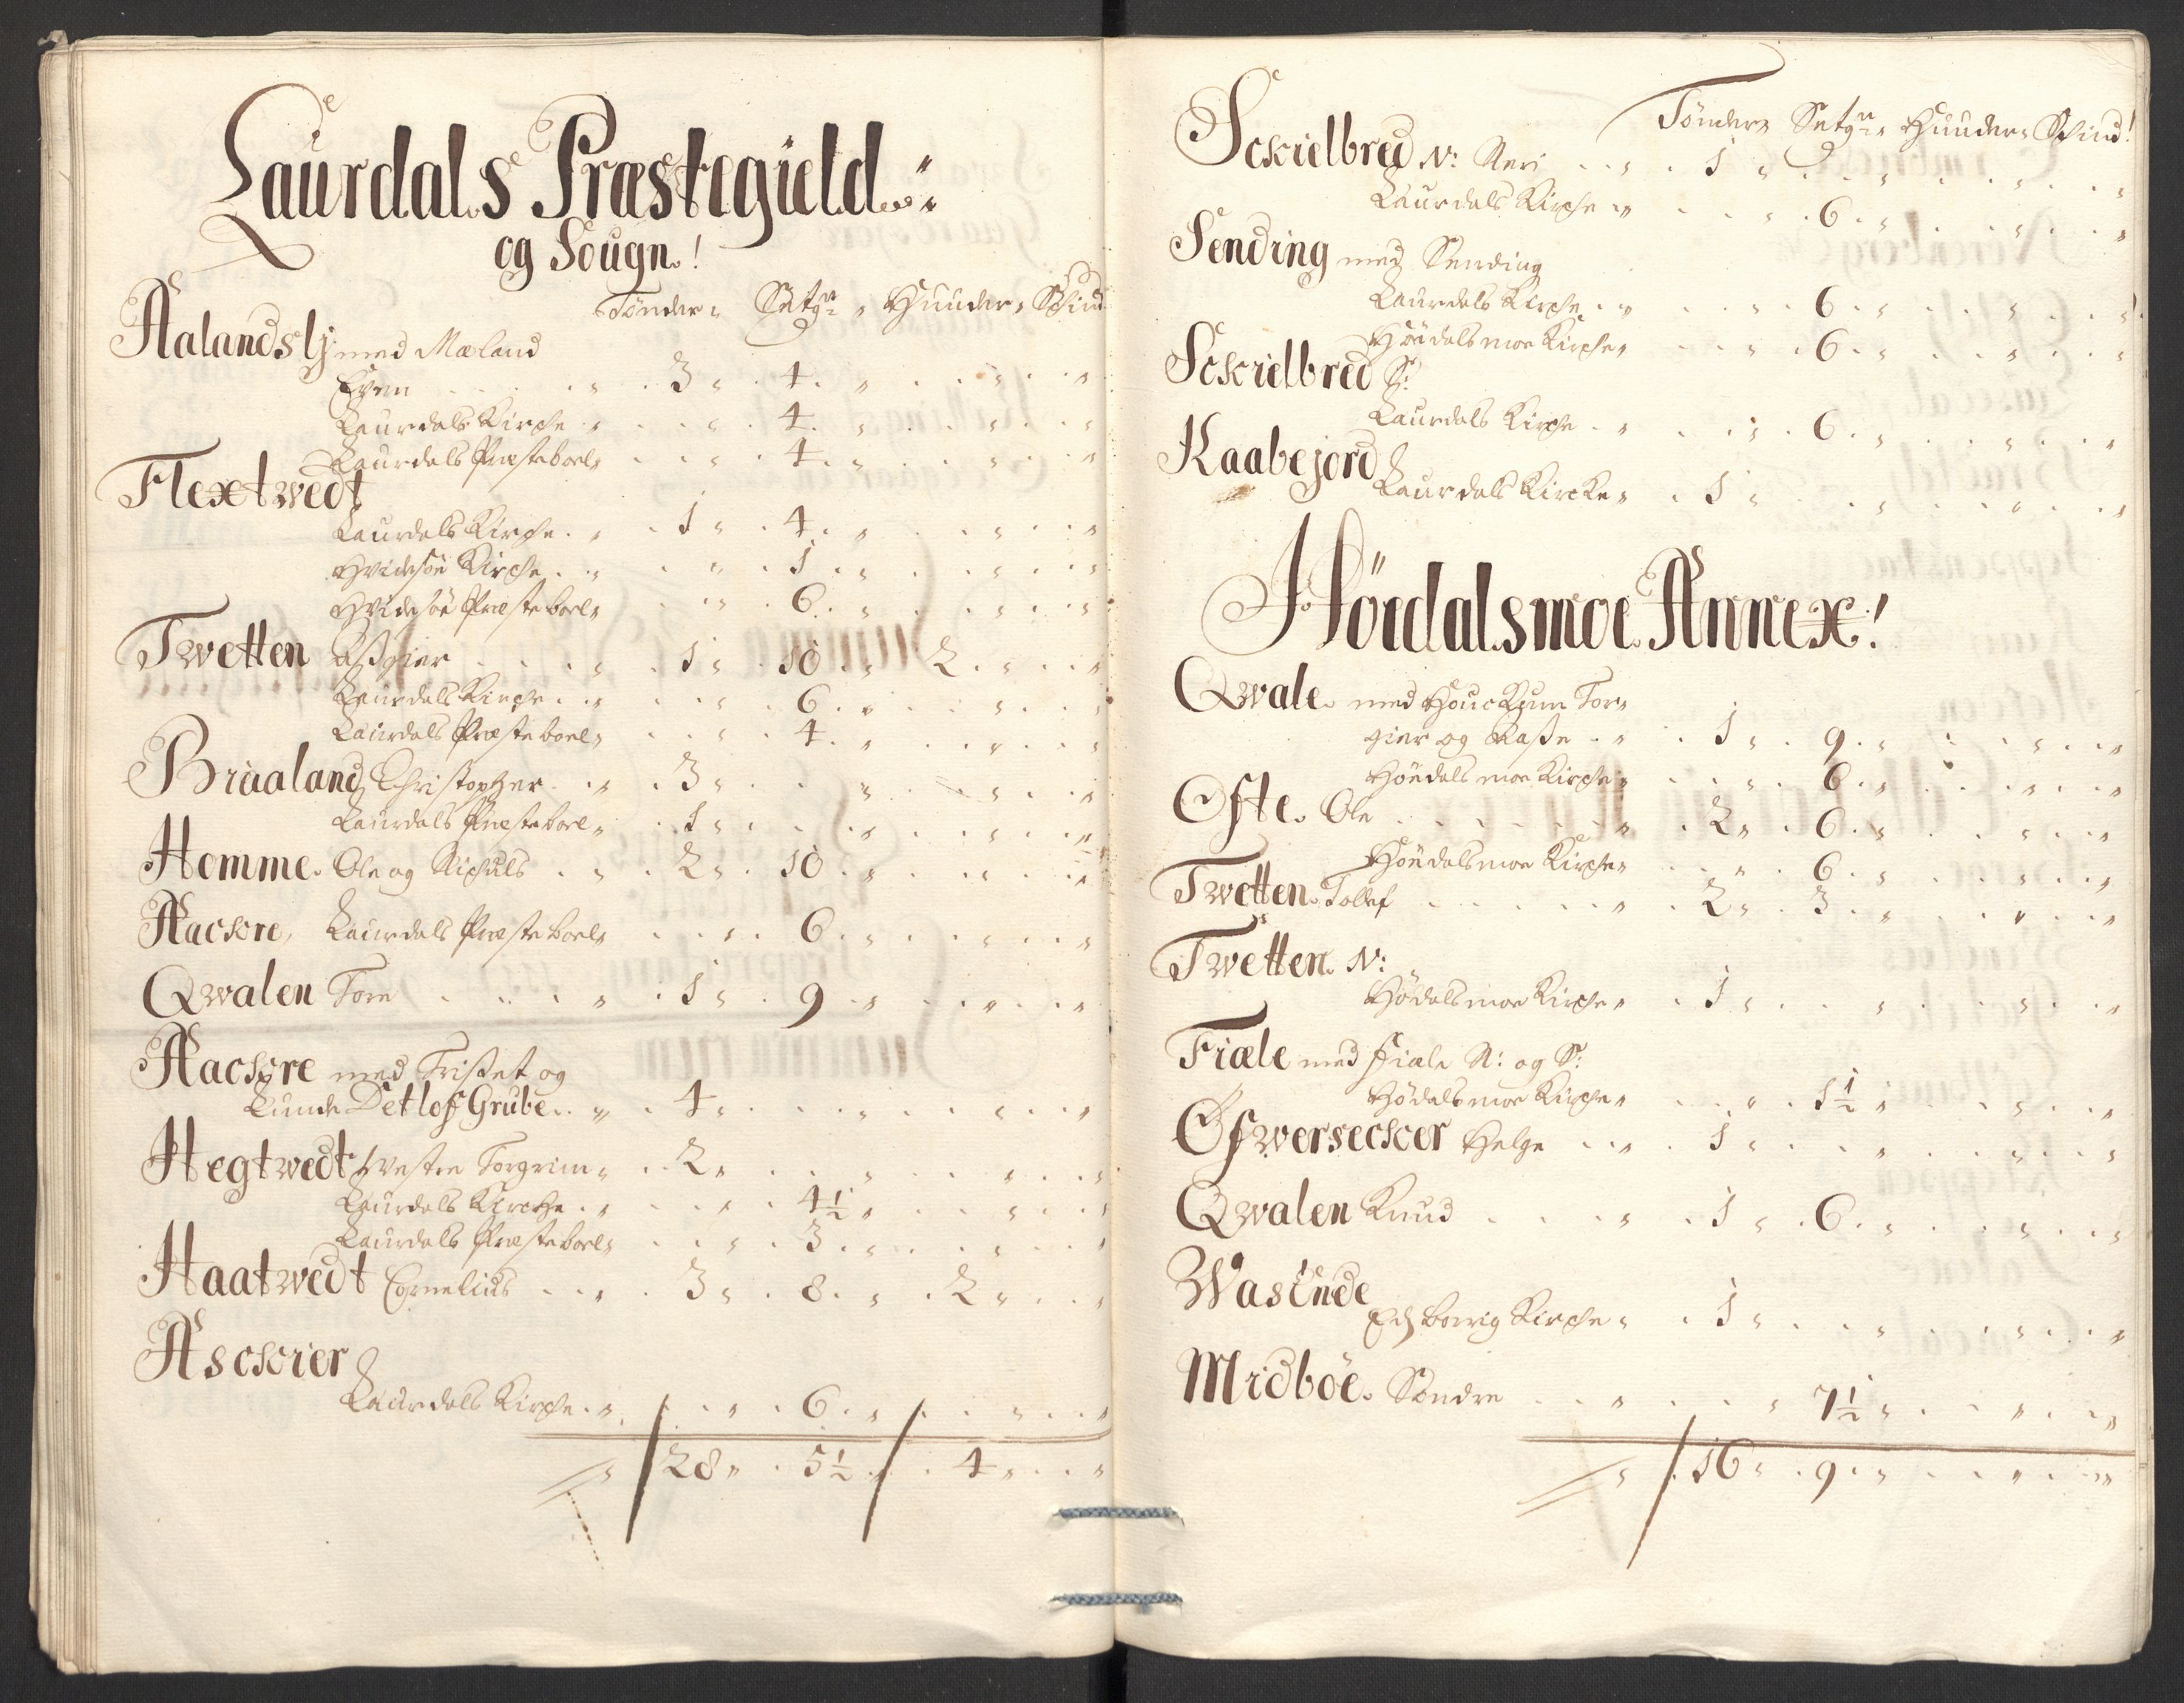 Laurdals Præstegield
og Sougn!
Tønder Setgr Huuder Schind
Aalandslj med Mæland
Even 3 4
Laurdals Kirche 4
Laurdals Præsteboel 4
Flextwedt
Laurdals Kirche 1 4
Hvidesøe Kirche 1
Hvidesøe Præsteboel 6
Twetten Asgier 1 10 2
Laurdals Kirche 6
Laurdals Præsteboel 4
Braaland Christopher 3
Laurdals Præsteboel 1
Homme Ole og Richuls 2 10
Aackre, Laurdals Præsteboel 6
Qwalen Tore 1 9
Aackre med Tristet og
Lunde Detlof Grube 4
Hegtwedt Westre Torgrim 2
Laurdals Kirche 4½
Laurdals Præsteboel 3
Haatwedt Cornelius 3 8 2
Asckier
Laurdals Kirche 6
28 5½ 4
Tønder Setgr Huuder Schind!
Sckielbred N: Neri 1
Laurdals Kirche 6
Sending med Sending
Laurdals Kirche 6
Høidalsmoe Kirche 6
Sckielbred S:
Laurdals Kirche 6
Kaabejord
Laurdals Kircke 1
Høidalsmoe Annex!
Qwale med Houckum Tor
gier og Aasse 1 9
Høidalsmoe Kirche 6
Ofte Ole 2 6
Høidalsmoe Kirche 6
Twetten Tollef 2 3
Twetten N:
Hødalsmoe Kirche 1
Fiæle med Fiæle N: og S:
Hødalsmoe Kirche 1½
Øfwersecker Helge 1
Qwalen Knud 1 6
Wasende
Kirche 1
Midbøe Søndre 7½
16 9